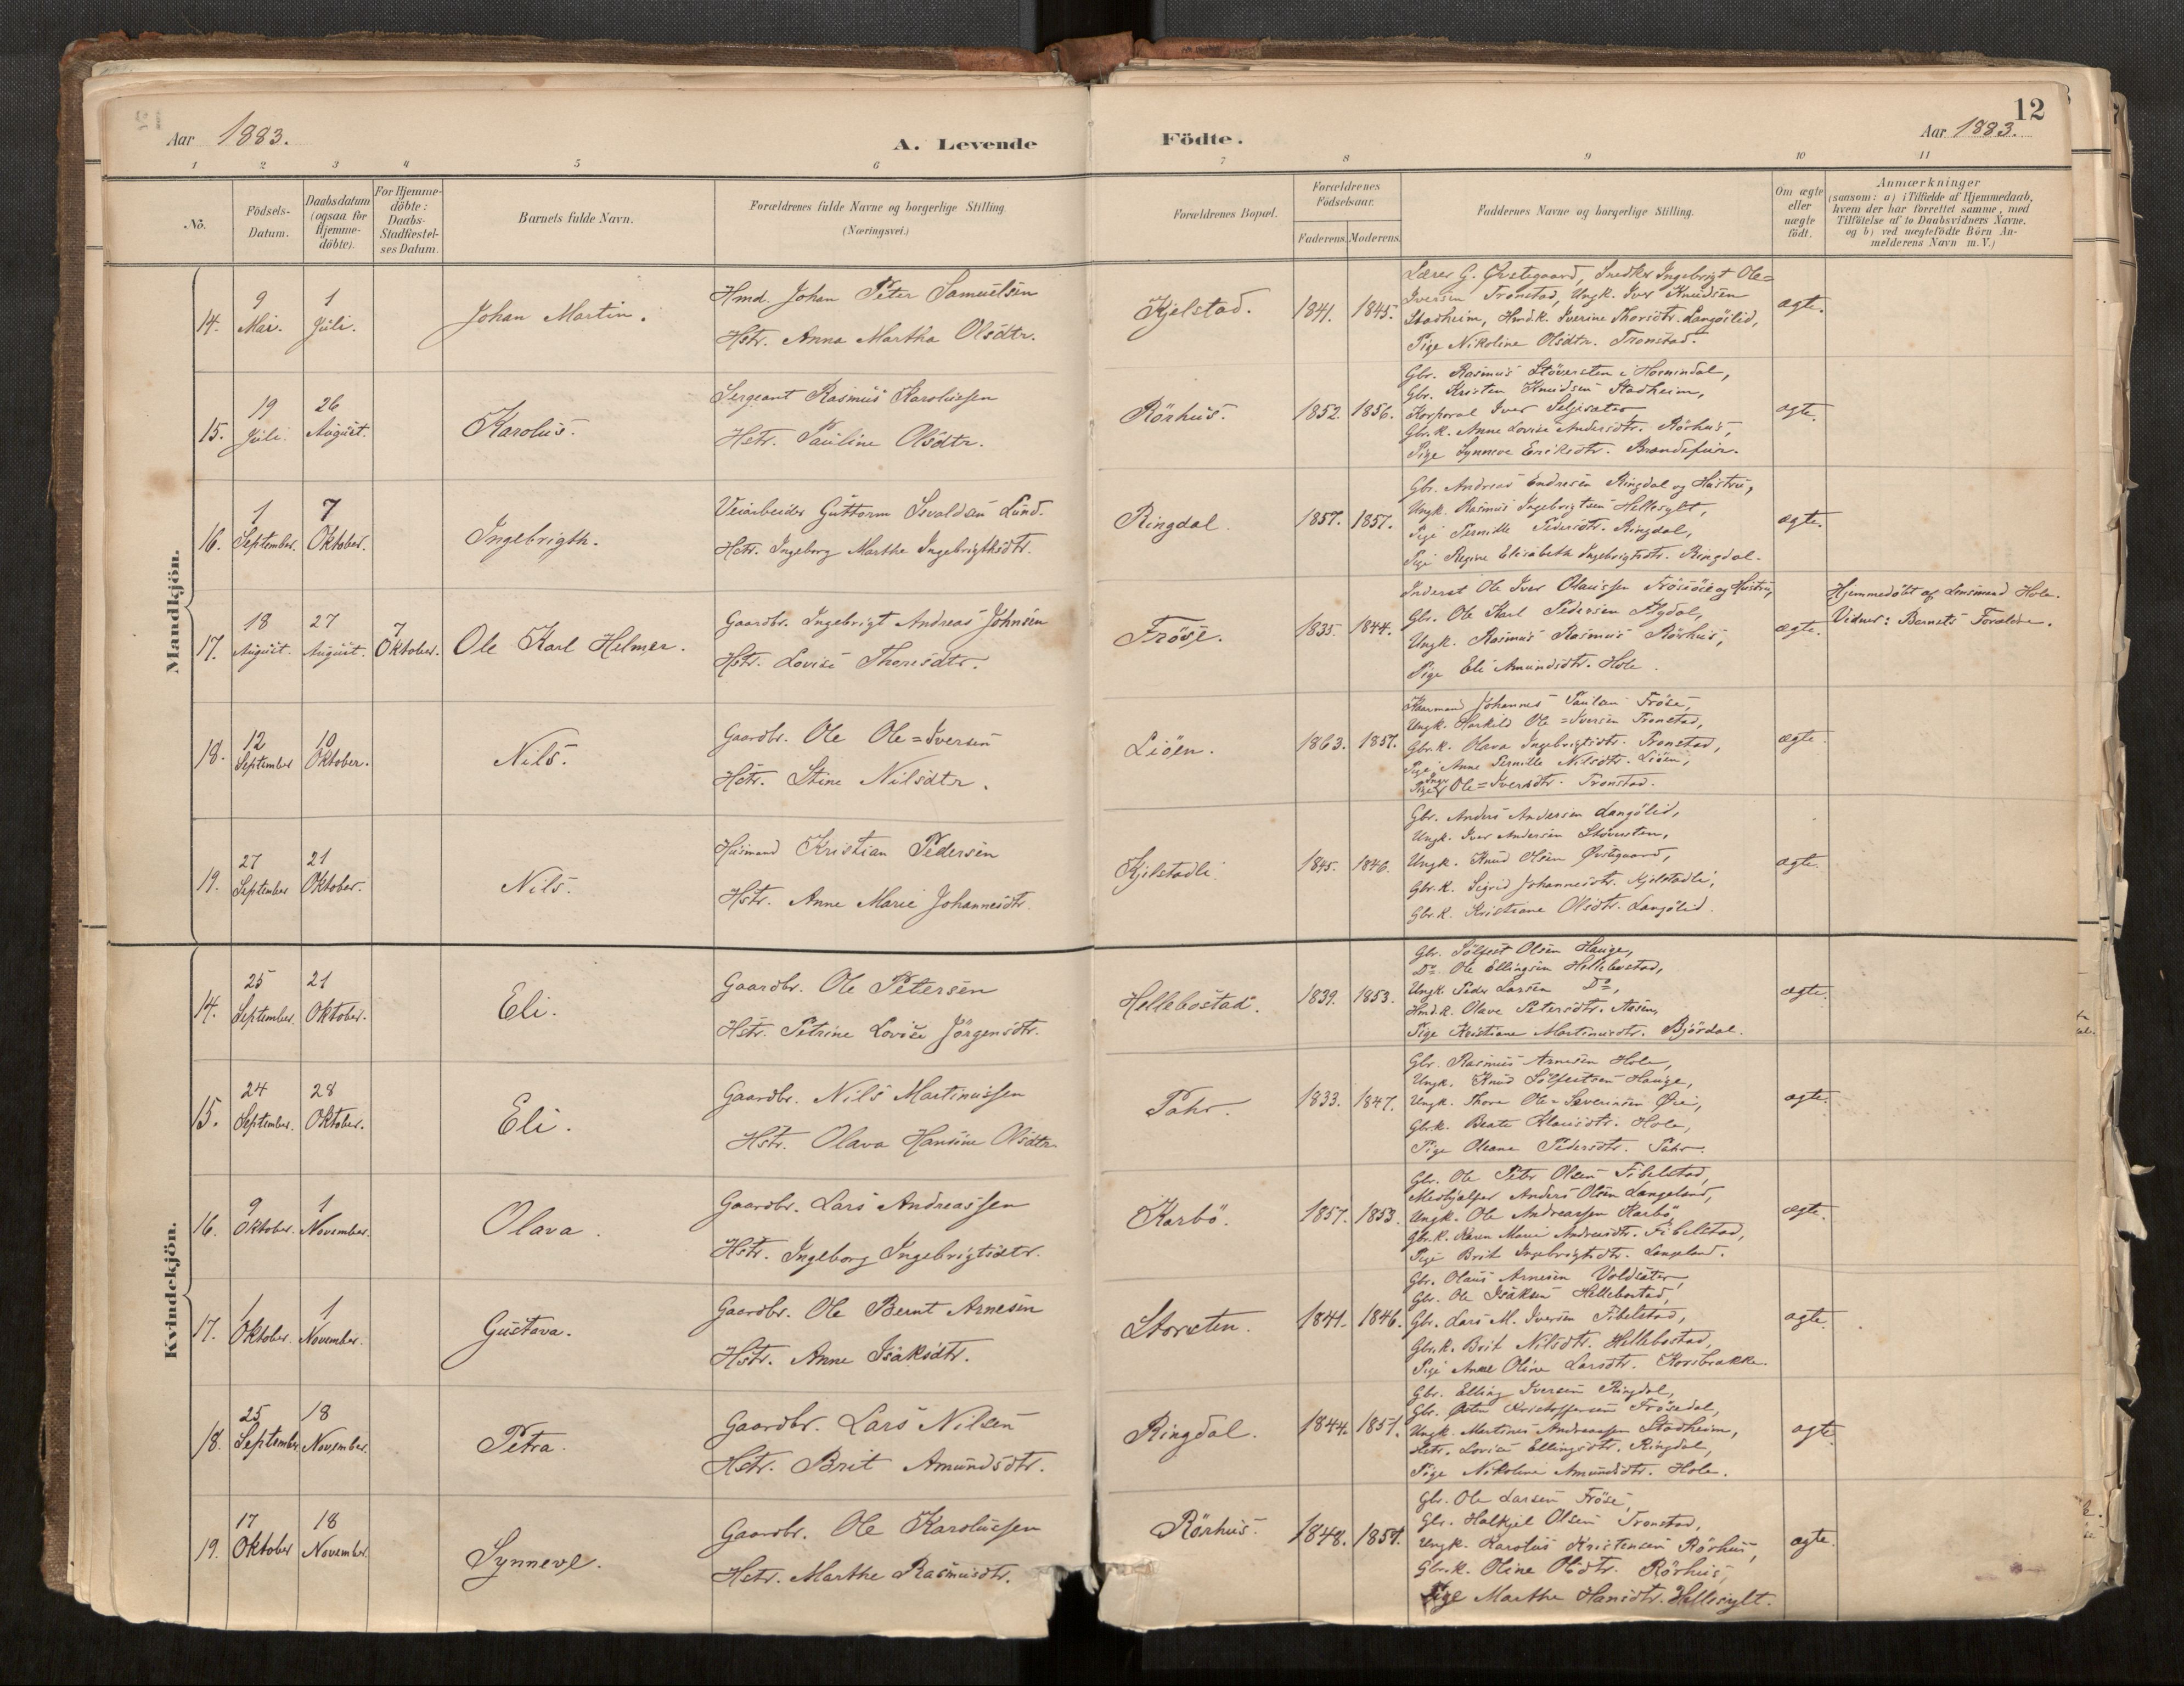 Aar 1883.
A. Levende
Födte.
12
Aar 1883.
1 2 3 4 5 6 7 8 9 10 11
No.
Födsels-Datum.
Daabsdatum (ogsaa for Hjemme-döbte).
For Hjemme-döbte: Daabs-Stadfæstel-ses Datum.
Barnets fulde Navn.
Forældrenes fulde Navne og borgerlige Stilling.
(Næringsvei.)
Forældrenes Bopæl.
Forældrenes Födselsaar.
Faderens. Moderens.
Faddernes Navne og borgerlige Stilling.
Om ægte eller uægte födt.
Anmærkninger
(saasom: a) i Tilfælde af Hjemmedaab, hvem der har forrettet samme, med Tilföielse af to Daabsvidners Navne. og b) ved uægtefödte Börn Anmelderens Navn m. V.)
Mandkjön.
14. 9 Mai. 1 Juli. Johan Martin.
Hmd. Johan Peter Samuelsen
Hstr. Anna Martha Olsdtr.
Kjelstad. 1841. 1845.
Lærer G. Øvstegaard, Snedker Ingebrigt Ole=
Iversen Tronstad, Ungk. Iver Knudsen
Stadheim, Hmd.k. Iverine Thorsdtr. Langölid,
Pige Nikoline Olsdtr. Tronstad.
ægte.
15. 19 Juli. 26 August. Karolus.
Sergeant Rasmus Karolussen
Hstr. Pauline Olsdtr.
Rörhus. 1852. 1856.
Gbr. Rasmus Stöversten i Hornindal,
Gbr. Kristen Knudsen Stadheim,
Korporal Iver
Gbr.k. Anne Lovise Andersdtr. Rörhus,
Pige Synneve Eriksdtr.
ægte.
16. 1 September. 7 Oktober. Ingebrigth.
Veiarbeider Guttorm Lund.
Hstr. Ingeborg Marthe Ingebrigthsdtr.
Ringdal. 1857. 1857.
Gbr. Andreas Endresen Ringdal og Hustru,
Ungk. Rasmus Ingebrigtsen Hellesylt,
Pige Pernille Pedersdtr. Ringdal,
Pige Regine Elisabeth Ingebrigtsdtr. Ringdal.
ægte.
17. 18 August. 27 August. 7 Oktober. Ole Karl Helmer.
Gaardbr. Ingebrigt Andreas Johnsen
Hstr. Lovise Thoresdtr.
Fröse. 1835. 1844.
Inderst Ole Iver Olaussen og Hustru,
Gbr. Ole Karl Pedersen
Ungk. Rasmus Rasmus Rörhus,
Pige Eli Amundsdtr. Hole.
ægte.
Hjemmedöbt af Lensmand Hole.
Vidner: Barnets Forældre.
18. 12 September 10 Oktober. Nils.
Gaardbr. Ole Ole=Iversen
Hstr. Stine Nilsdtr.
Liöen. 1863. 1857.
Johannes Paulsen Fröse,
Ungk. Ole=Iversen Tronstad,
Gbr.k. Olava Ingebrigtsdtr. Tronstad,
Pige Anne Pernille Nilsdtr. Liöen,
Pige Inger Ole=Iversdtr. Tronstad.
ægte.
19. 27 September 21 Oktober. Nils.
Husmand Kristian Pedersen
Hstr. Anne Marie Johannesdtr.
Kjelstadli. 1845. 1846.
Gbr. Anders Andersen Langölid,
Ungk. Iver Andersen Stöversten,
Ungk. Knud Olsen Øvstegaard,
Gbr.k. Sigrid Johannesdtr. Kjelstadli,
Gbr.k. Kristiane Olsdtr. Langölid.
ægte.
Kvindekjön.
14. 25 September. 21 Oktober. Eli.
Gaardbr. Ole Petersen
Hstr. Petrine Lovise Jörgensdtr.
Hellebostad. 1839. 1853.
Gbr. Sölfest Olsen Hauge,
Do Ole Ellingsen Hellebostad,
Ungk. Peder Larsen Do,
Hmd.k. Olave Petersdtr. Aasen,
Pige Kristiane Martinusdtr. Björdal.
ægte.
15. 24 September. 28 Oktober. Eli.
Gaardbr. Nils Martinussen
Hstr. Olava Hansine Olsdtr.
1833. 1847.
Gbr. Rasmus Arnesen Hole,
Ungk. Knud Sölfestsen Hauge,
Ungk. Thore Ole=Severinsen Øie,
Gbr.k. Beate Klausdtr. Hole,
Pige Oleane Pedersdtr.
ægte.
16. 9 Oktober. 1 November. Olava.
Gaardbr. Lars Andreassen
Hstr. Ingeborg Ingebrigtsdtr.
Karbö. 1857. 1853.
Gbr. Ole Peter Olsen Fibelstad,
Medhjælper Anders Olsen Langeland,
Ungk. Ole Andreassen Karbö,
Gbr.k. Karen Marie Andreasdtr. Fibelstad,
Pige Brit Ingebrigtsdtr. Langeland.
ægte.
17. 1 Oktober. 1 November. Gustava.
Gaardbr. Ole Bernt Arnesen
Hstr. Anne Isaksdtr.
Storeten. 1841. 1846.
Gbr. Olaus Arnesen Voldsæter,
Gbr. Ole Isaksen Hellebostad,
Gbr. Lars M. Iversen Fibelstad,
Gbr.k. Brit Nilsdtr. Hellebostad,
Pige Anne Oline Larsdtr. Korsbrække.
ægte.
18. 25 September 18 November. Petra.
Gaardbr. Lars Nilsen
Hstr. Brit Amundsdtr.
Ringdal. 1844. 1857.
Gbr. Elling Iversen Ringdal,
Gbr. Østen Kristoffersen Frösedal,
Ungk. Martinus Andreassen Stadheim,
Hstr. Lovise Ellingsdtr. Ringdal,
Pige Nikoline Amundsdtr. Hole.
ægte.
19. 17 Oktober 18 November. Synneve.
Gaardbr. Ole Karolussen
Hstr. Marthe Rasmusdtr.
Rörhus. 1848. 1857.
Gbr. Ole Larsen Fröse,
Gbr. Halkjel Olsen Tronstad,
Ungk. Karolus Kristensen Rörhus,
Gbr.k. Oline Olsdtr. Rörhus,
Pige Marthe Hansdtr. Hellesylt.
ægte.